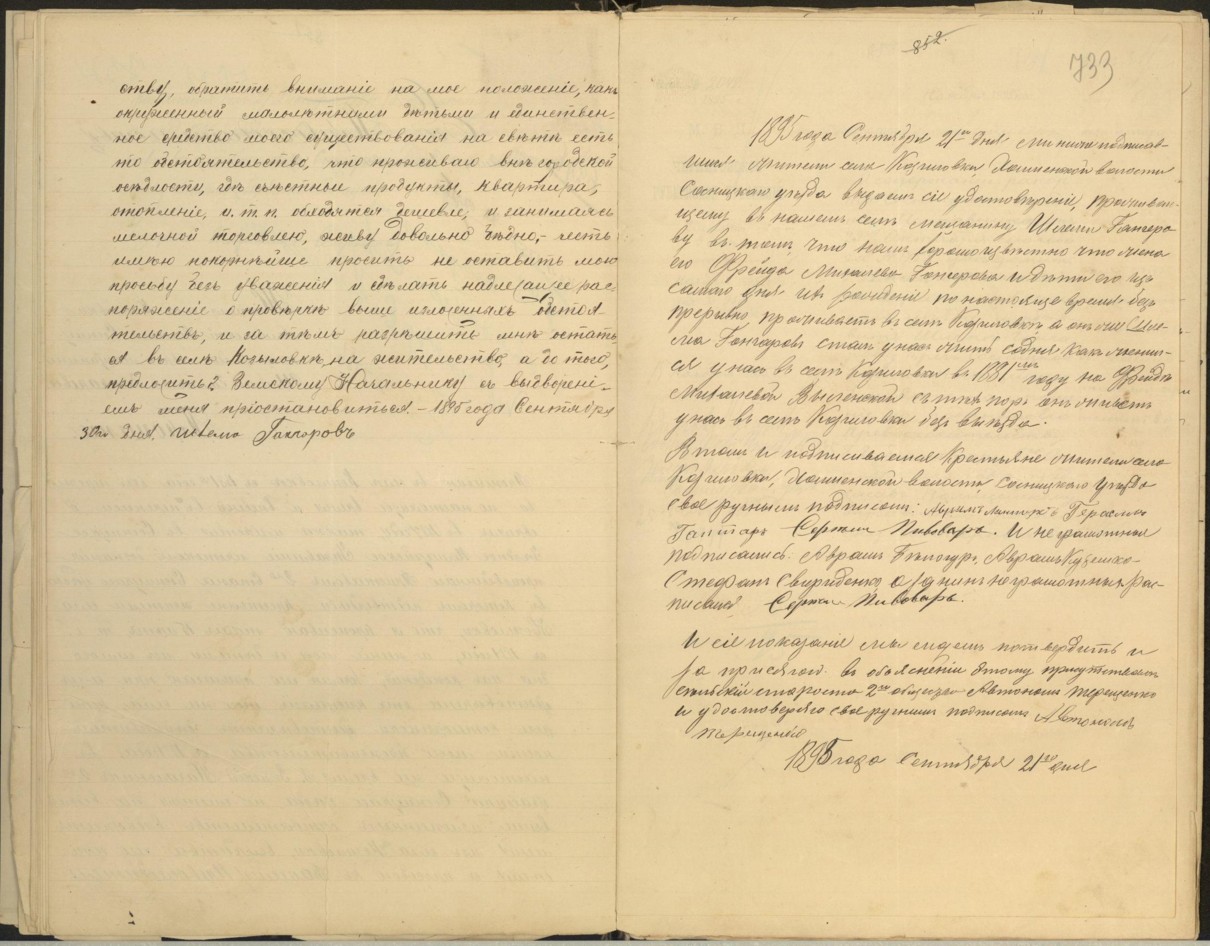 ству, обратить вниманіе на мое положеніе, какъ
окруженный малолѣтними дѣтьми и единствен-
ное средство моего существованія на свѣтѣ есть
то обстоятельство, что проживаю внѣ городской
осѣдлости, гдѣ съѣстные продукты, квартира,
отопленіе, и. т. п. обходятся дешевле, и занимаясь
мелочной торговлею, живу довольно бѣдно,- честь
имѣю покорнѣйше просить не оставить мою
просьбу безъ уваженія и сдѣлать надлежащее рас-
поряженіе о провѣркѣ выше изложенныхъ обстоя
тельствъ, и за тѣмъ разрѣшить мнѣ остать
ся въ селѣ Козыловкѣ, на жительство, а до того,
предложить Г. Земскому Начальнику съ выдворені-
емъ меня пріостановиться. - 1895 года Сентября
30го дня Шлема Ганчаровъ
852.
733
1895 года Сентября 21го дня мы ниже подписав-
шия жители села Козиловки Холменской волости
Сосницкого уезда видали сіе удостовѣреніе, прожива-
щему въ нашемъ селѣ мещанину Шлеми Ганчаро
ву въ томъ, что намъ хорошо извѣстно что жена
его Фрейда Михилева Ганчарова и дѣти его изъ
самаго дня ихъ рождения по настояще время безъ
прерывно проживаетъ въ селѣ Козиловкѣ, а онъ же Шле-
ма Ганчаровъ сталъ у насъ жить со дня какъ женил-
ся у насъ въ селѣ Козиловки въ 1881мъ году на Фрейдѣ
Михилевой съ тѣхъ поръ онъ живетъ
у насъ въ селѣ Козиловки безъ выезда.
В томъ и подписиваемся Крестьяне жители села
Козиловки, Холменской волости, Сосницкого уезда
свое ручнымъ подписомъ: Герасимъ
Гаптарь Сергѣи Пивоваръ. И не грамотния
подписались. Авраамъ Бѣлогуръ, Аврамъ Кузменко
Стефанъ Свириденко а за нихъ неграмотныхъ рас-
писался Сергѣи Пивоваръ.
И сіе показаніе мы можемъ потвердить и
за присягою. въ объясненіи этому присутствовалъ
сельскій староста 2го общества Автономъ Терещенко
и удостоверяю свое ручнимъ подписомъ Автономъ
Терещенко
1895 года Сентября 21го дня